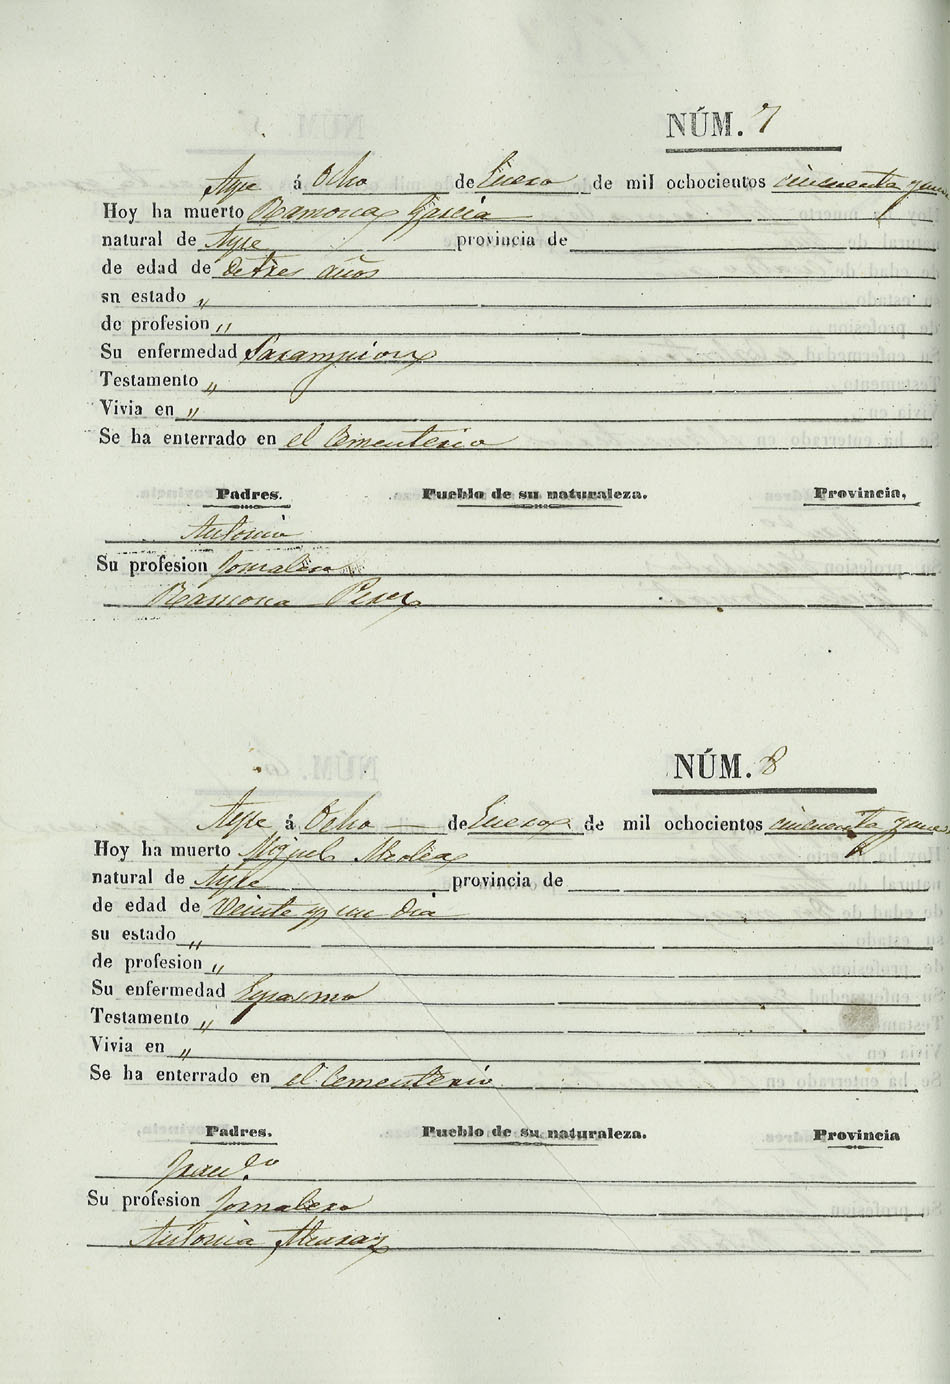 NÚM. 7
Aspe á Ocho de Enero de mil ochocientos cincuenta y
Hoy ha muerto Ramona Garcia
natural de Aspe provincia de
de edad de de tres años
sn estado "
de profesion "
Su enfermedad Sarampion
Testamento "
Vivia en "
Se ha enterrado en el Cementerio
Padres. Pueblo de su naturaleza. Provincia.
Antonio
Su profesion Jornalero
Ramona Perez
NÚM. 8
Aspe á Ocho de Enero de mil ochocientos cincuenta y
Hoy ha muerto Miguel
natural de Aspe provincia de
de edad de Veinte y un dia
su estado "
de profesion "
Su enfermedad Espasmo
Testamento "
Vivia en "
Se ha enterrado en el Cementerio
Padres. Pueblo de su naturaleza. Provincia
Fran.co
Su profesion Jornalero
Antonia